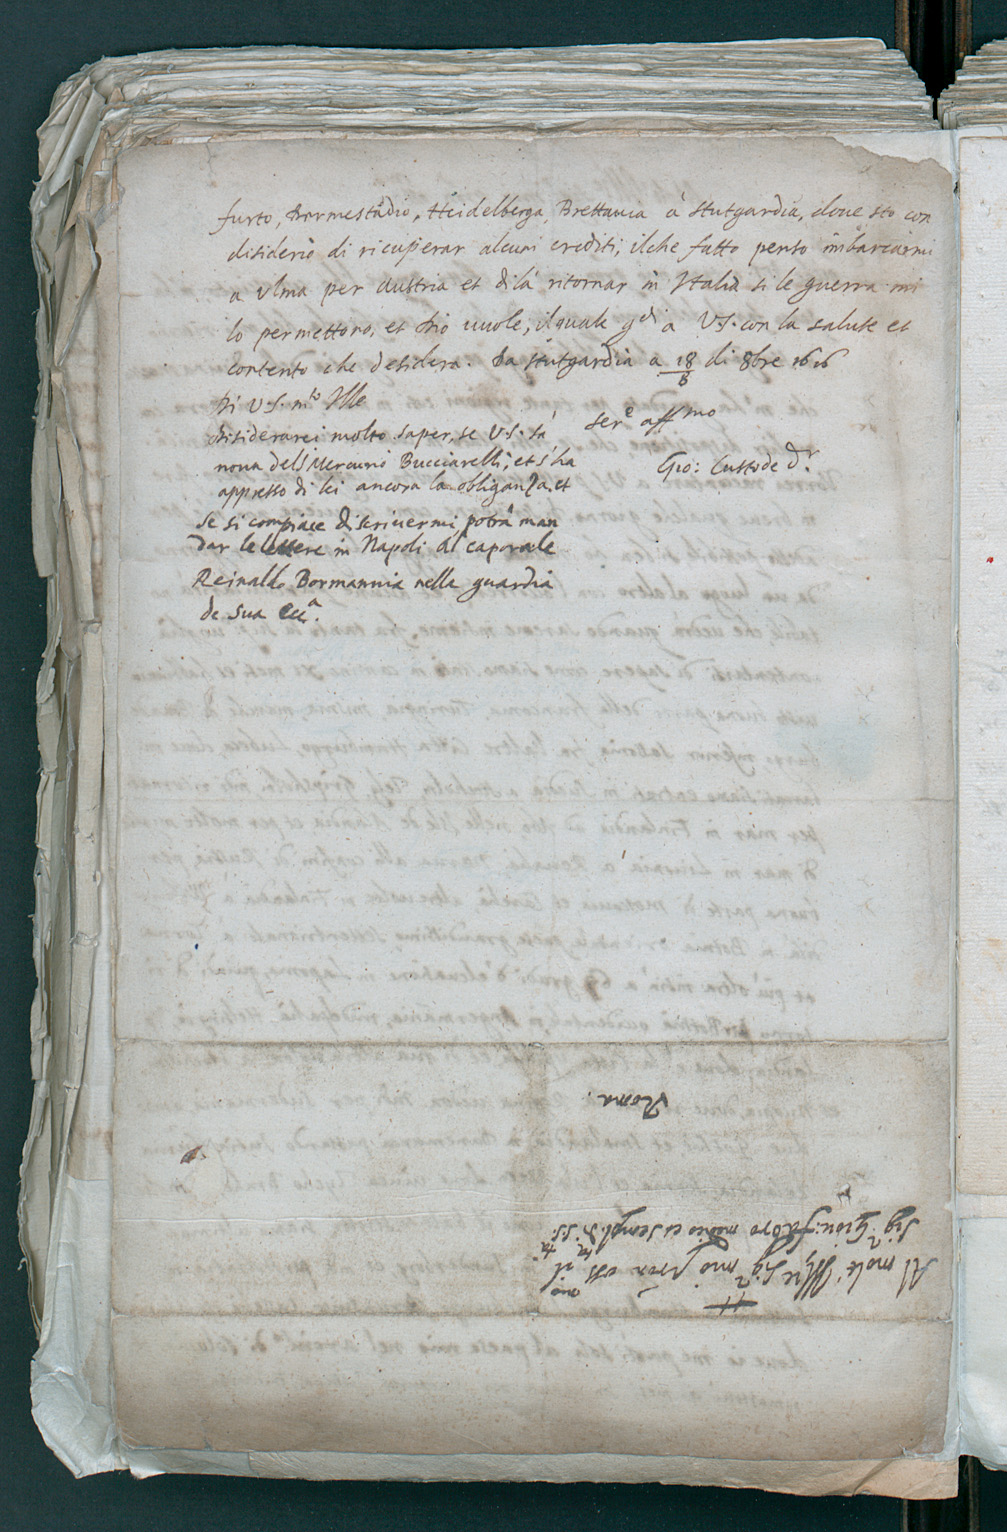 furto, Darmestadio, Heidelberga, Brettania à Stutgardia, doue sto con
disiderio di ricuperar alcuni crediti, ilche fatto penso imbarcarmi
a Ulma per Austria et di là ritornar in Italia si le guerra mi
lo permettono, et Dio uuole, il quale gdi a VS. con la salute et
contento che desidera. Da Stutgardia a 18/8 di 8bre 1616
Di V.S. mto Ille
Serē affmo
Gio: Custode Dr.
disiderarei molto saper, se V.S. sà
noua del S Mercurio Bucciarelli, et s'ha
appresso di lei ancora la obliganza, et
se si compiace di scriuermi, potrà man
dar le lettere in Napoli al caporale
Reinaldo Bormannia nella guardia
de Sua Ecca.
Roma.
Al molt' Illre Sigr mio il
Sigr Giou: Fabro medico et sempl. di S.Sta